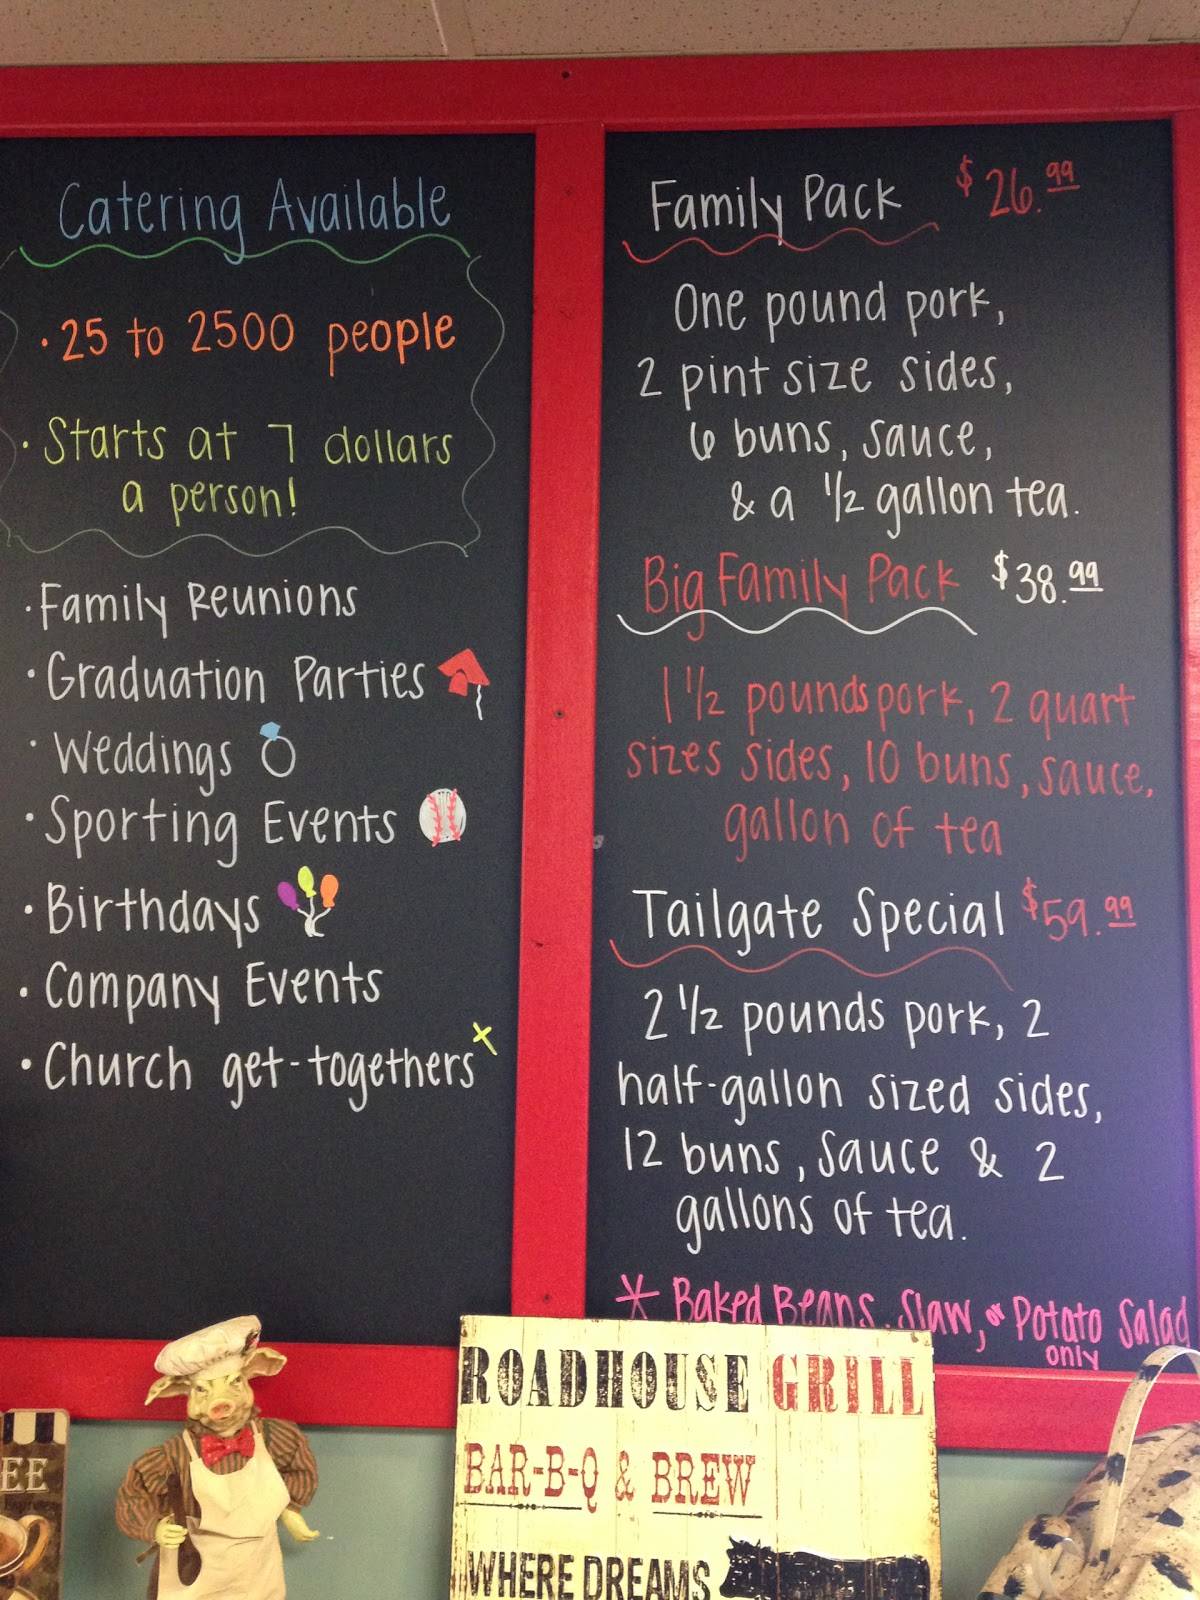 Catering Available
· 25 to 2500 people
· Starts at 7 dollars
a person!
· Family Reunions
· Graduation Parties
· Weddings
· Sporting Events
· Birthdays
· Company Events
· Church get-togethers
Family Pack $26.99
One pound pork,
2 pint size sides,
6 buns, sauce,
& a 1/2 gallon tea.
Big Family Pack $38.99
1 1/2 pounds pork, 2 quart
sizes sides, 10 buns, sauce,
gallon of tea
Tailgate Special $59.99
2 1/2 pounds pork, 2
half-gallon sized sides,
12 buns, sauce & 2
gallons of tea.
* Baked Beans, Slaw, or Potato Salad
only
ROADHOUSE GRILL
BAR-B-Q & BREW
WHERE DREAMS
EE